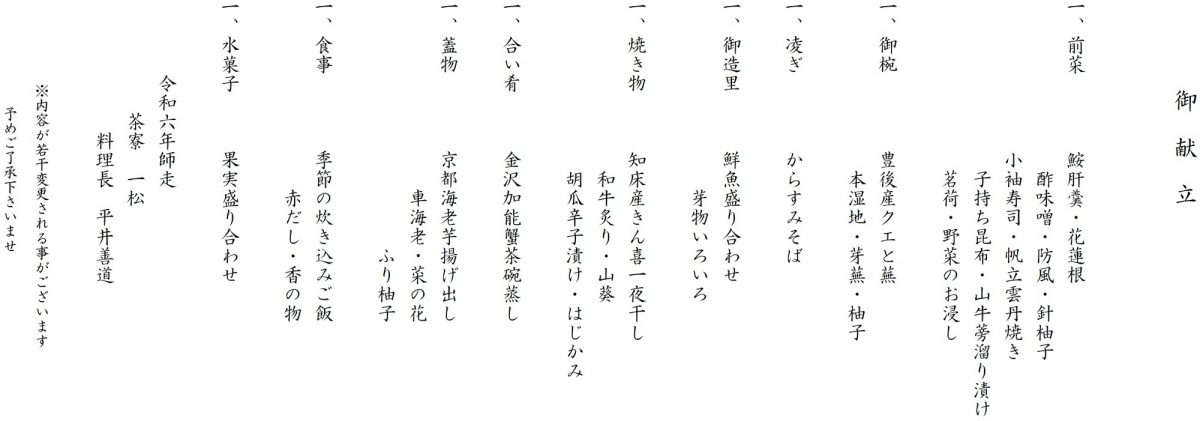 御献立
一、前菜　鮟肝羹・花蓮根
酢味噌・防風・針柚子
小袖寿司・帆立雲丹焼き
子持ち昆布・山牛蒡溜り漬け
茗荷・野菜のお浸し
一、御椀　豊後産クエと蕪
本湿地・芽蕪・柚子
一、凌ぎ　からすみそば
一、御造里　鮮魚盛り合わせ
芽物いろいろ
一、焼き物　知床産きん喜一夜干し
和牛炙り・山葵
胡瓜辛子漬け・はじかみ
一、合い肴　金沢加能蟹茶碗蒸し
一、蓋物　京都海老芋揚げ出し
車海老・菜の花
ふり柚子
一、食事　季節の炊き込みご飯
赤だし・香の物
一、水菓子　果実盛り合わせ
令和六年師走
茶寮　一松
料理長　平井善道
※内容が若干変更される事がございます
予めご了承下さいませ